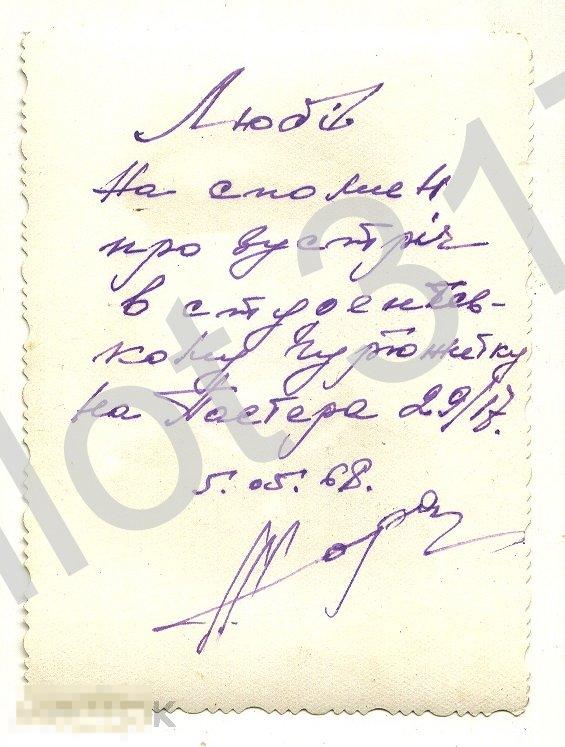 Любі
На спомен
про зустріч
в студентсь-
кому гуртожитку
на Пастера 29/17.
5.05.68.
Жора
lot 31